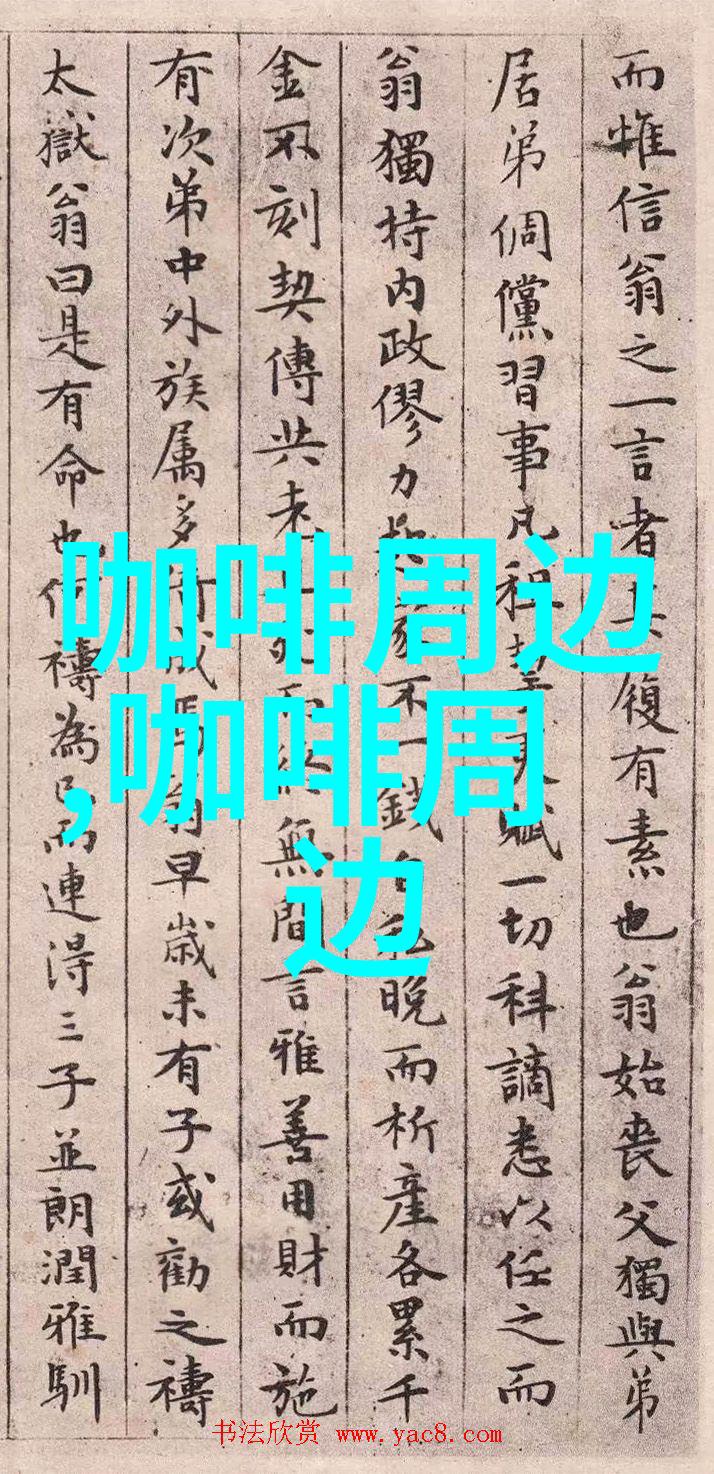 而惟信翁之一言者
履有素也翁始丧父獨與弟
居弟倜儻習事凡租
賦一切科謫悉以任之而
翁獨持内政僇力
不一錢
晚而析産各累千
金不刻契傳
無間言雅善用財而施
有次弟中外族属多
早歲未有子或勸之禱
太嶽翁曰是有命也
禱為
而連得三子並朗潤雅馴
咖啡周边
,咖啡周
边
书法欣赏 www.yac8.com